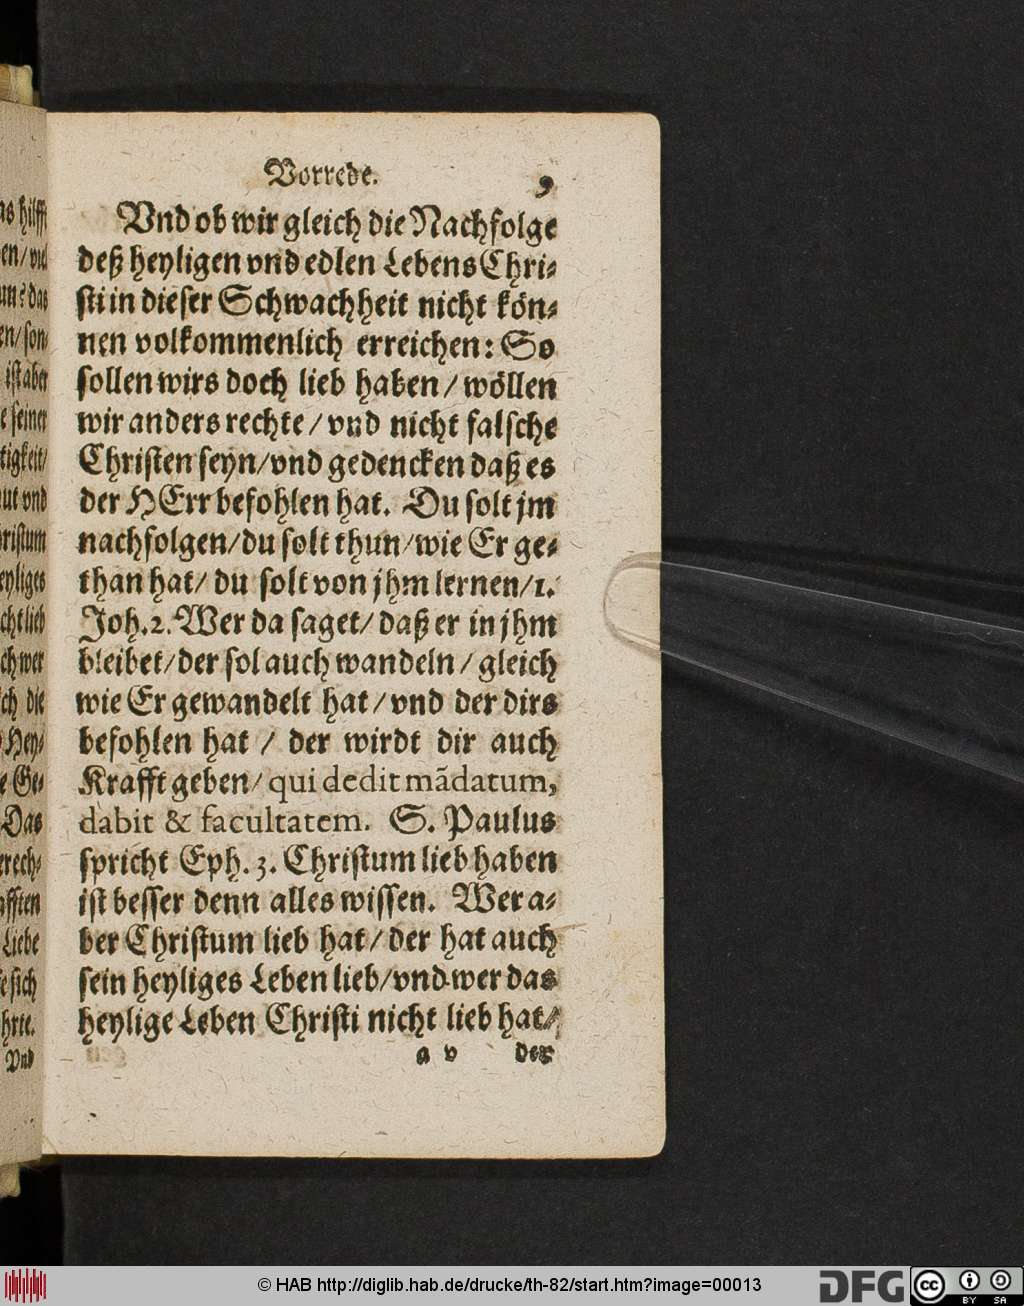 Vorrede. 9
Vnd ob wir gleich die Nachfolge
deß heyligen vnd edlen Lebens Chri-
sti in dieser Schwachheit nicht kön-
nen volkommenlich erreichen: So
sollen wirs doch lieb haben / wöllen
wir anders rechte / vnd nicht falsche
Christen seyn/vnd gedencken daß es
der HErr befohlen hat. Du solt jm
nachfolgen/du solt thun/wie Er ge-
than hat/ du solt von jhm lernen/1.
Joh.2. Wer da saget/ daß er in jhm
bleibet/der sol auch wandeln / gleich
wie Er gewandelt hat / vnd der dirs
befohlen hat / der wirdt dir auch
Krafft geben/ qui dedit mãdatum,
dabit & facultatem. S. Paulus
spricht Eph. 3. Christum lieb haben
ist besser denn alles wissen. Wer a-
ber Christum lieb hat / der hat auch
sein heyliges Leben lieb/vnd wer das
heylige Leben Christi nicht lieb hat/
a v der
hilfft
en/ viel
un? das
en/ son-
ist aber
e seiner
tigkeit/
ut vnd
ristum
eyliges
cht lieb
ch wer
ch die
Hey-
e Ge-
Das
erech-
fften
Liebe
e sich
hrte.
Vnd
© HAB http://diglib.hab.de/drucke/th-82/start.htm?image=00013
DFG
cc BY SA